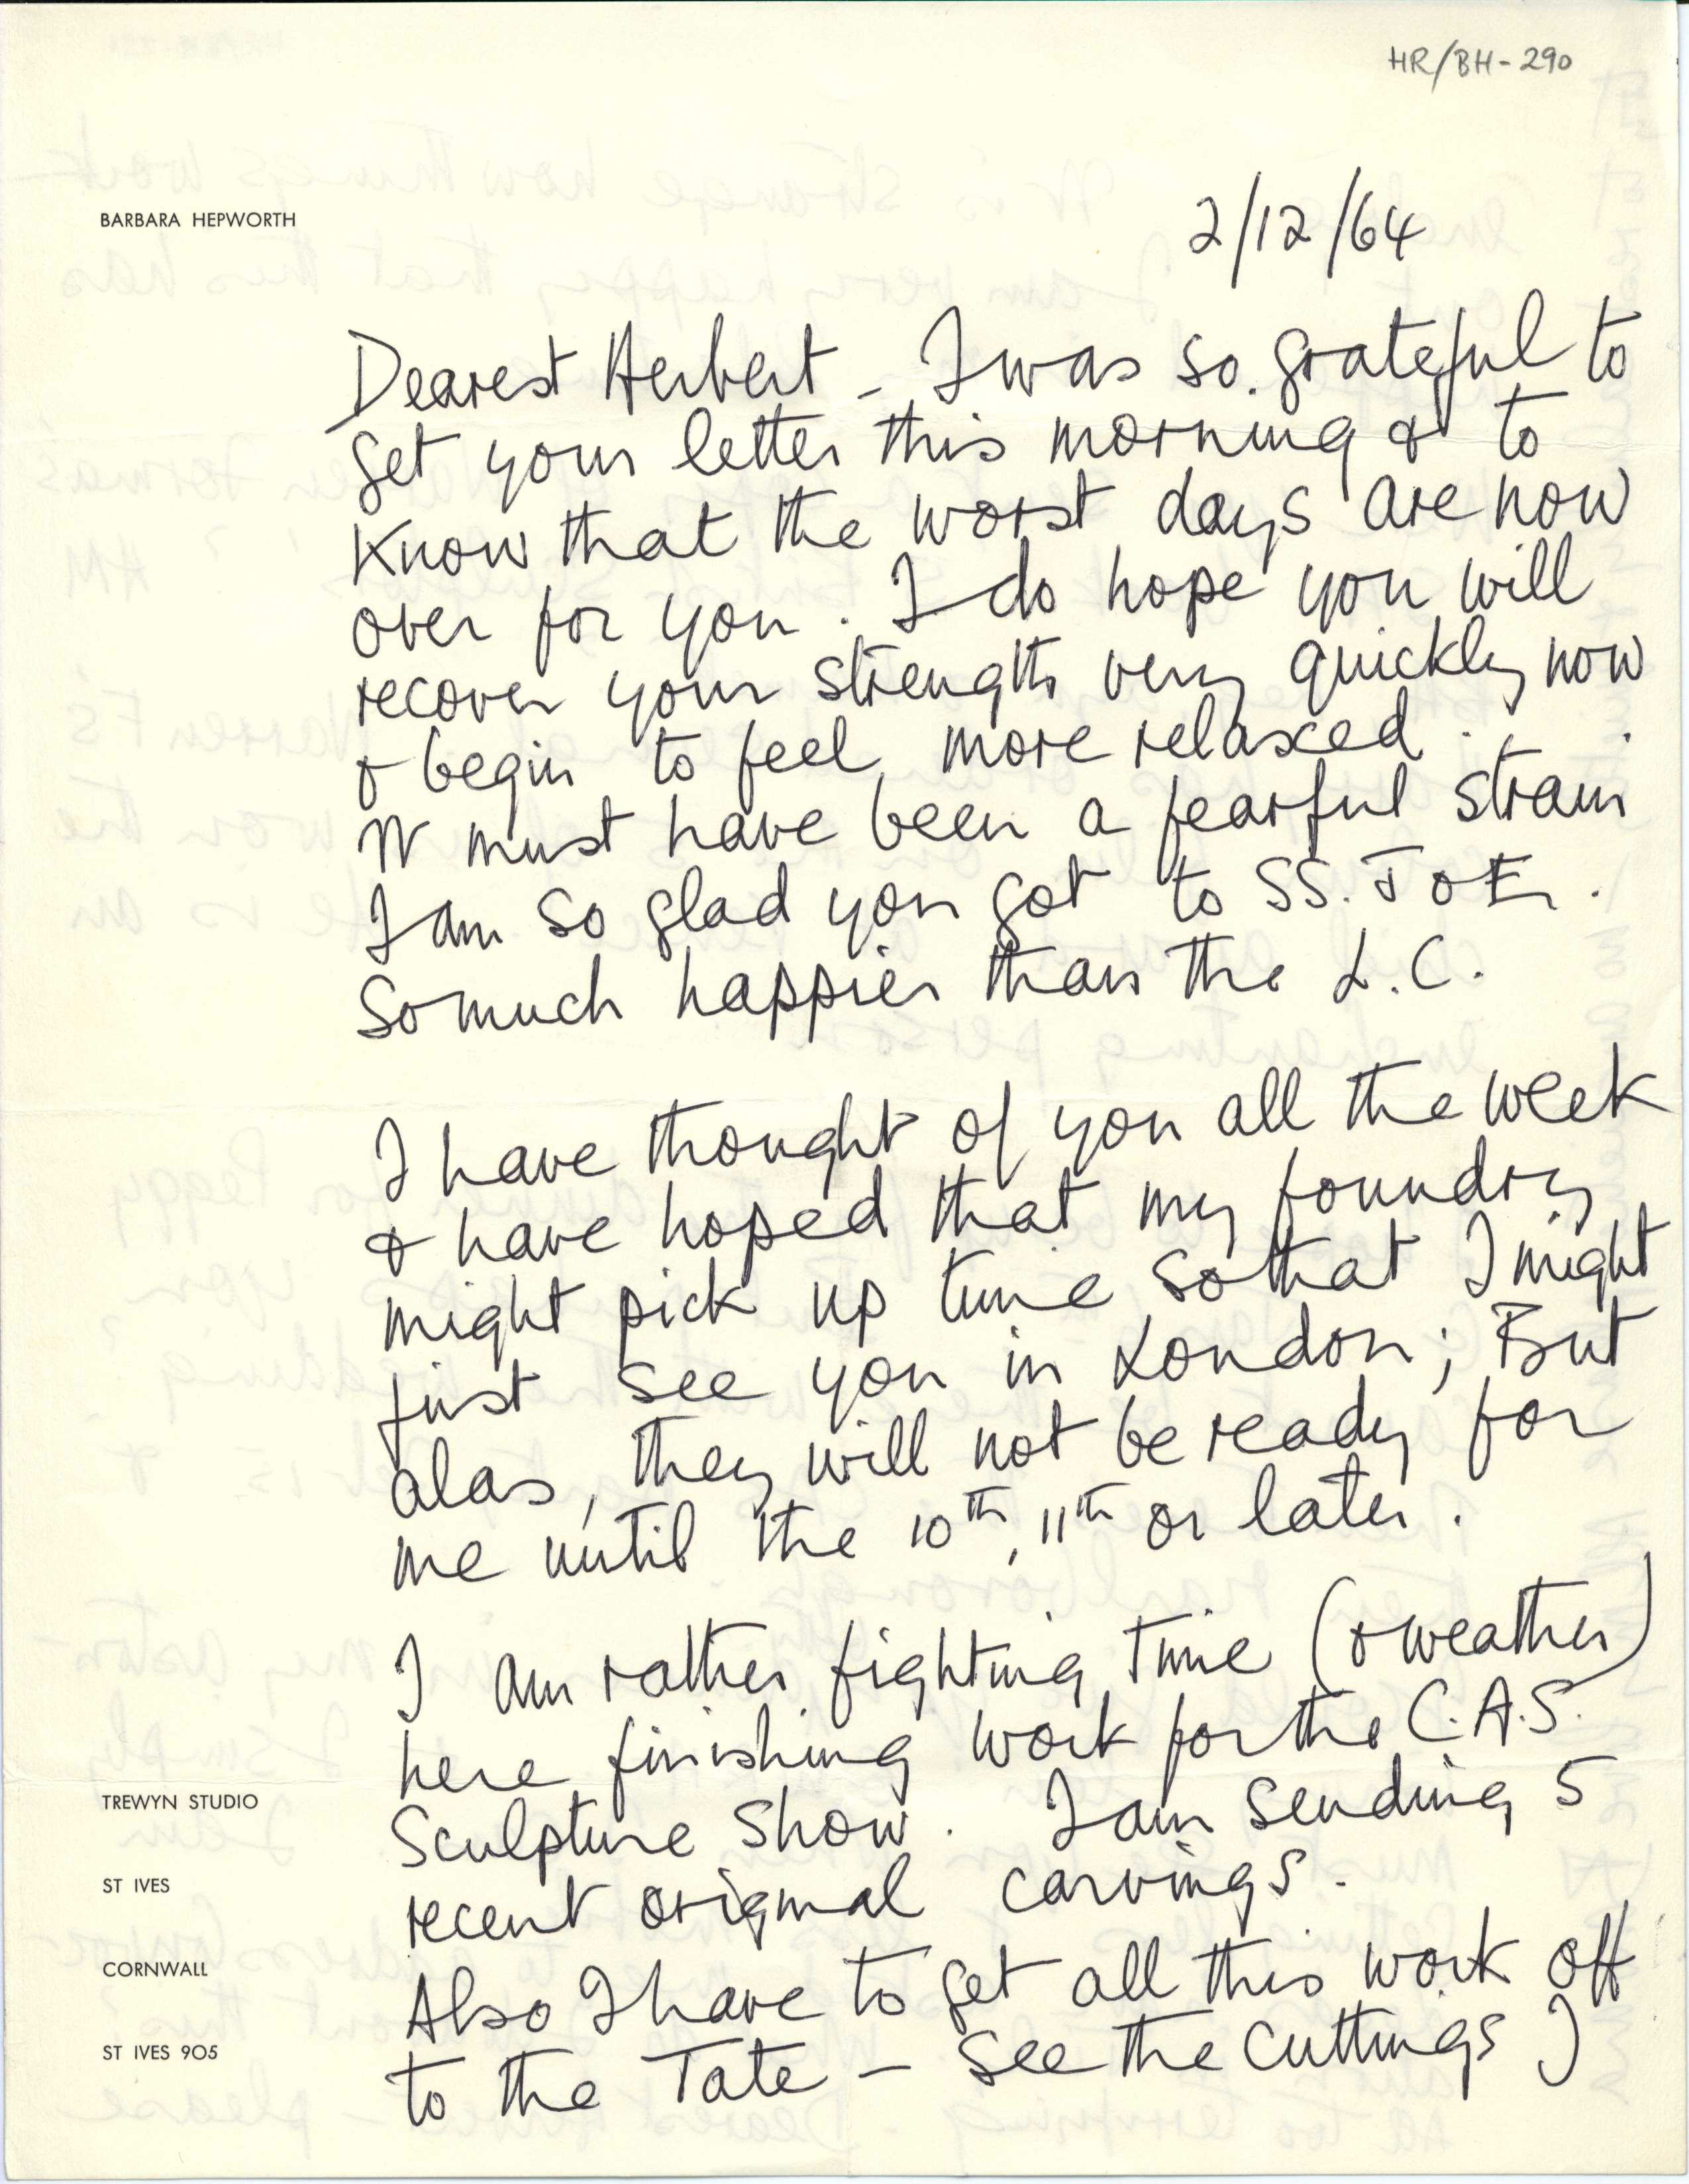 HR/BH-290
BARBARA HEPWORTH
2/12/64
Dearest Herbert - I was so grateful to
get your letter this morning & to
know that the worst days are now
over for you. I do hope you will
recover your strength very quickly now
& begin to feel more relaxed.
It must have been a fearful strain.
I am so glad you got to SS. J & E.
So much happier than the L.C.
I have thought of you all the week
& have hoped that my foundry
might pick up time so that I might
just see you in London; But
alas, they will not be ready for
me until the 10th, 11th or later.
I am rather fighting time (& weather)
here finishing work for the C.A.S.
Sculpture Show. I am sending 5
recent original carvings.
Also I have to get all this work off
to the Tate - see the cuttings I
TREWYN STUDIO
ST IVES
CORNWALL
ST IVES 905